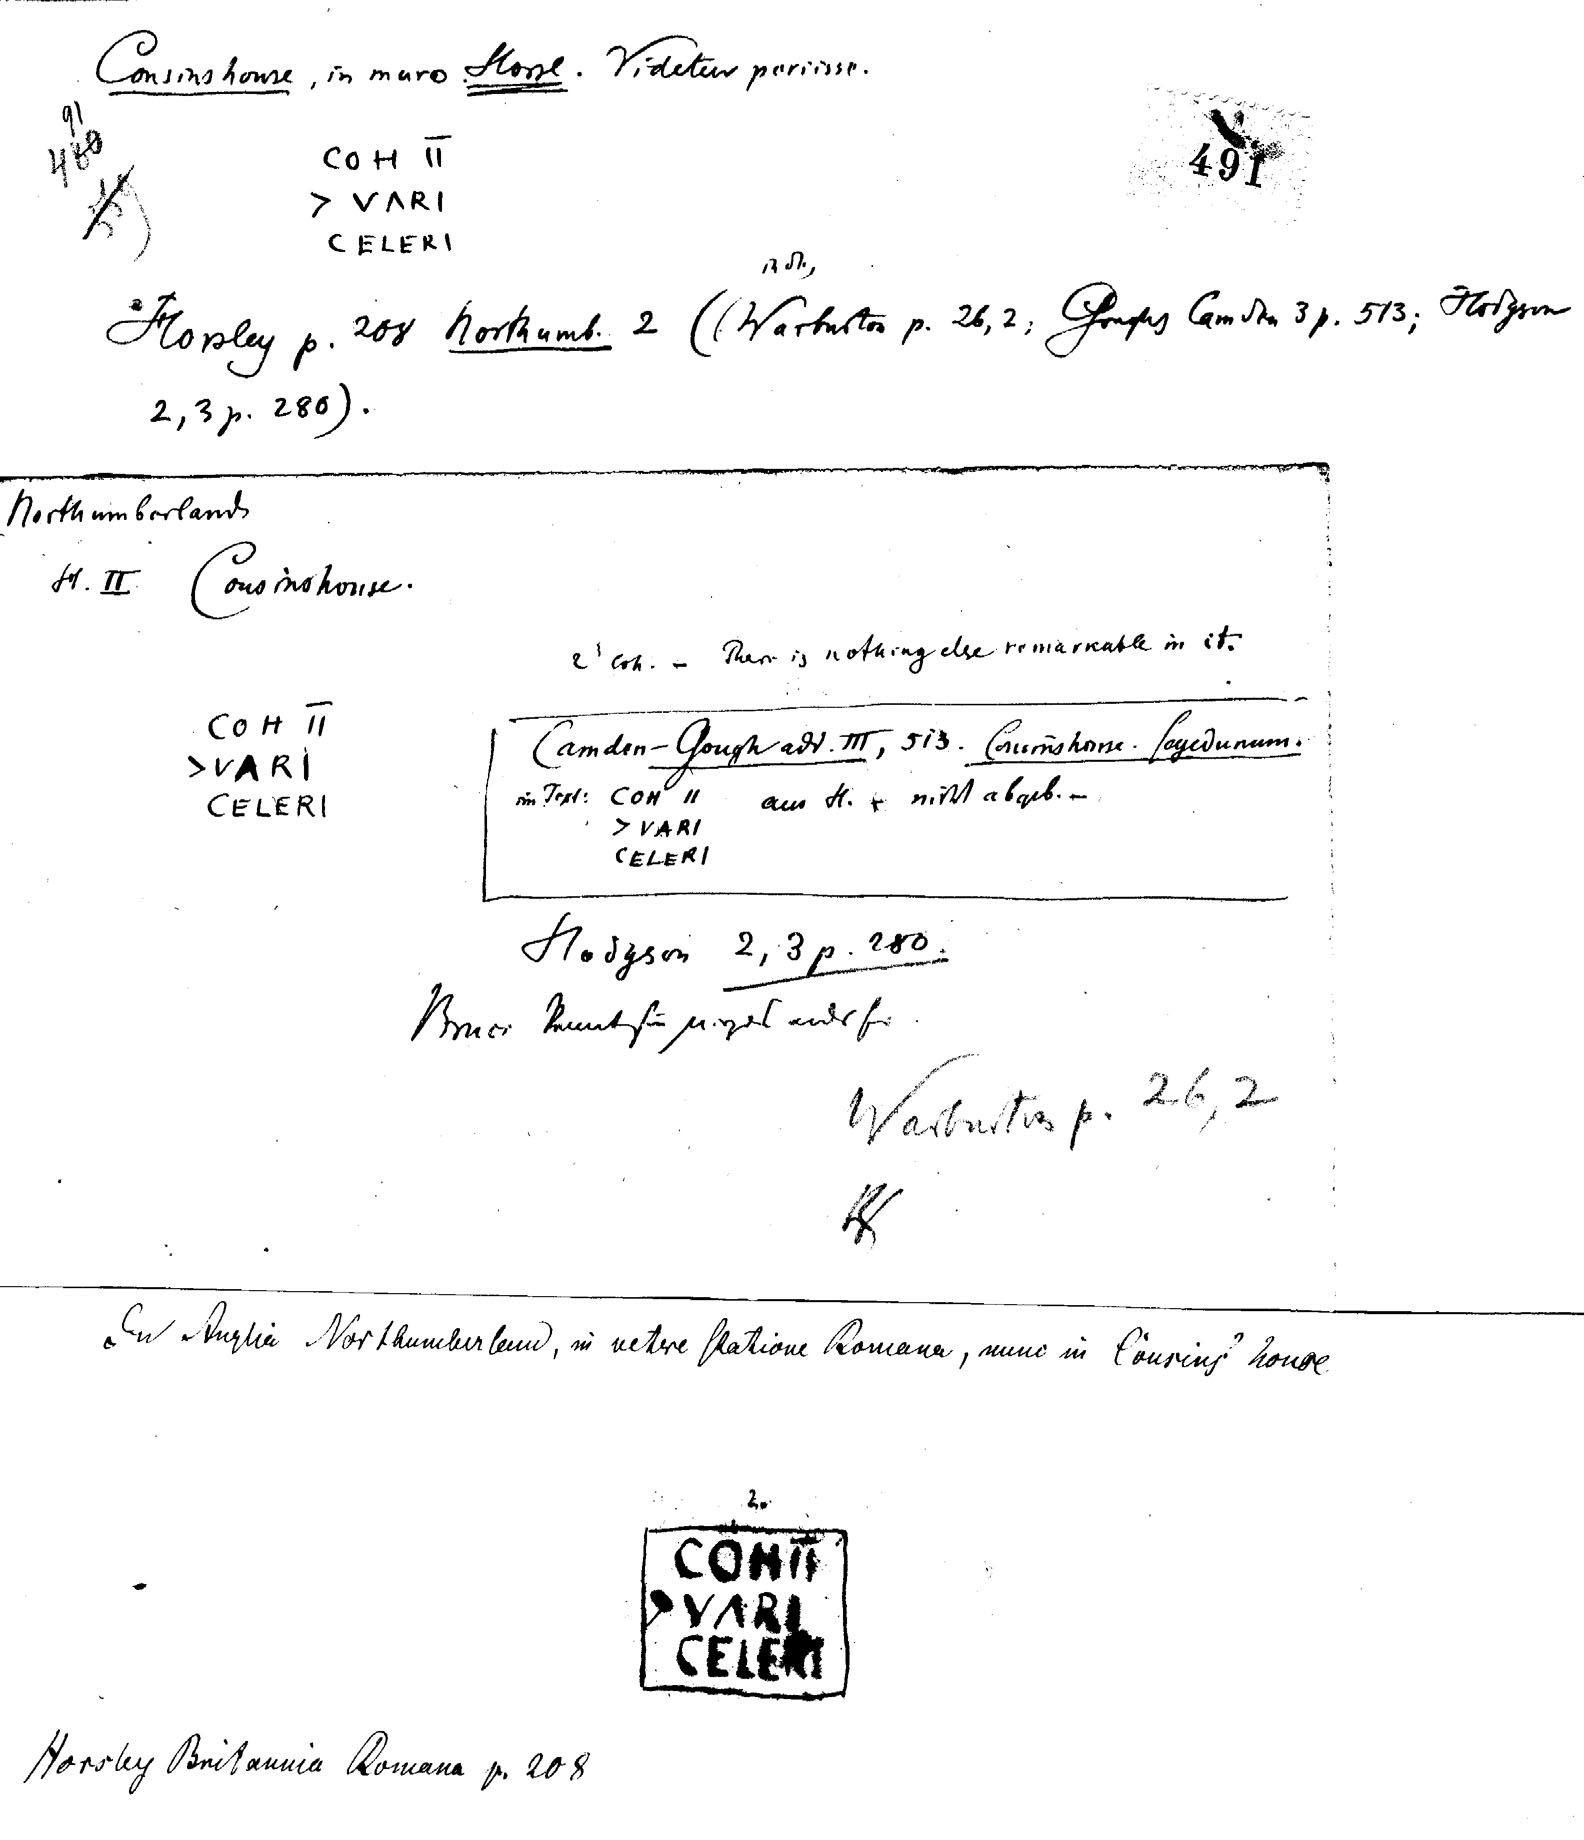 Cousinshouse, in muro Horsl. Videtur periisse.
91
480
491
COH II
> VARI
CELERI
Horsley p. 208 Northumb. 2 (Warburton p. 26,2; Goughs Camden 3 p. 513; Hodgson
2, 3 p. 280).
Northumberland
H. II Cousinshouse.
2' Coh. – There is nothing else remarkable in it.
COH II
>VARI
CELERI
Camden-Gough add. III, 513. Cousinshouse. Segedunum.
im Text: COH II aus H. + nicht abgeb. –
> VARI
CELERI
Hodgson 2, 3 p. 280.
Bruce
Warburton p. 26,2
In Anglia Northumberland, in vetere statione Romana, nunc in Cousins' house
2.
COH II
> VARI
CELERI
Horsley Britannia Romana p. 208